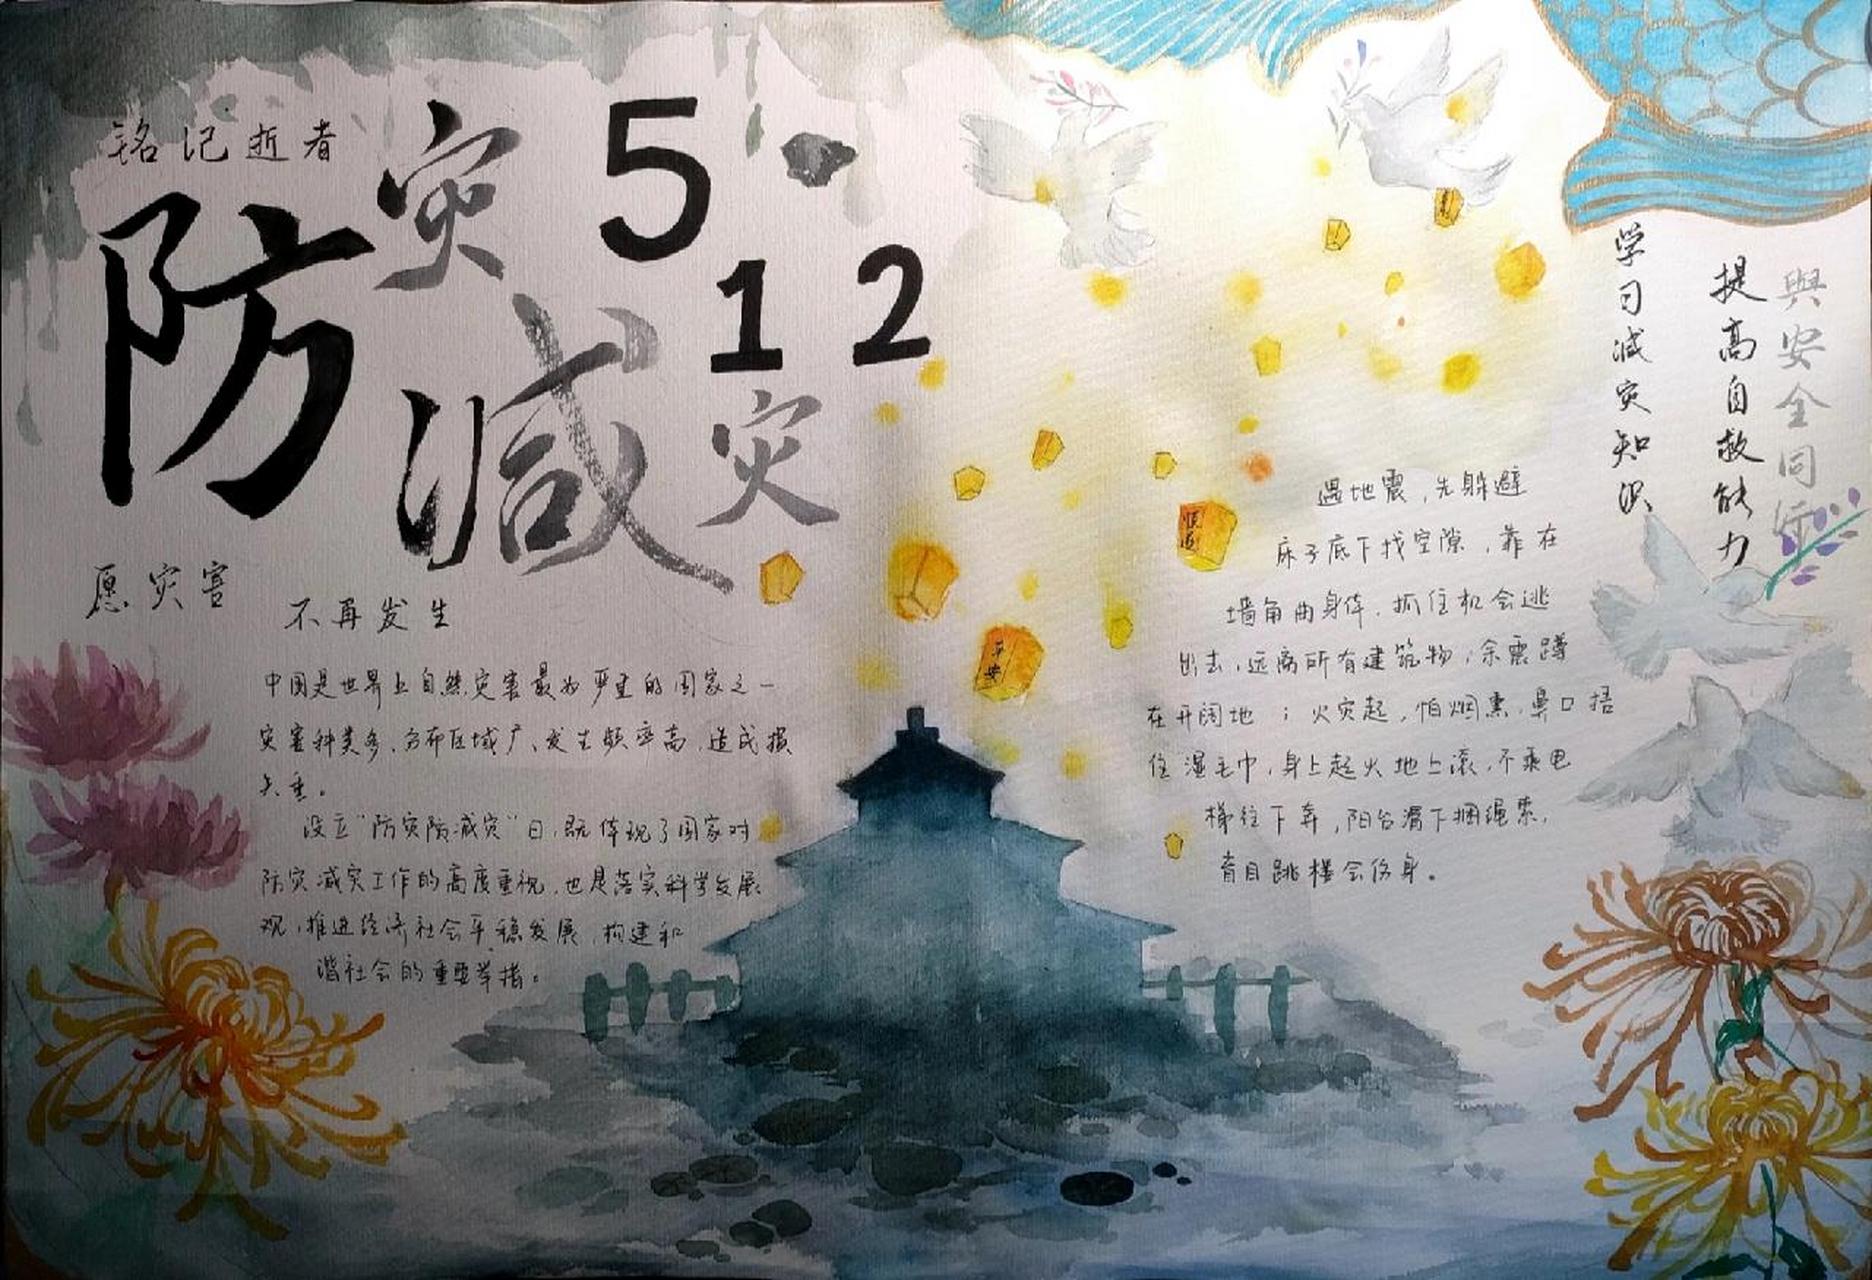 铭记逝者
防灾
减灾
5·12
愿灾害
不再发生
中国是世界上自然灾害最为严重的国家之一
灾害种类多、分布区域广、发生频率高,造成损
失重。
设立“防灾防减灾”日,既体现了国家对
防灾减灾工作的高度重视,也是落实科学发展
观,推进经济社会平稳发展,构建和
谐社会的重要举措。
平安
遇地震,先躲避
床子底下找空隙,靠在
墙角曲身体,抓住机会逃
出去,远离所有建筑物,余震蹲
在开阔地;火灾起,怕烟熏,鼻口捂
住湿毛巾,身上起火地上滚,不乘电
梯往下奔,阳台滑下捆绳索,
盲目跳楼会伤身。
學习减灾知识
提高自救能力
與安全同行